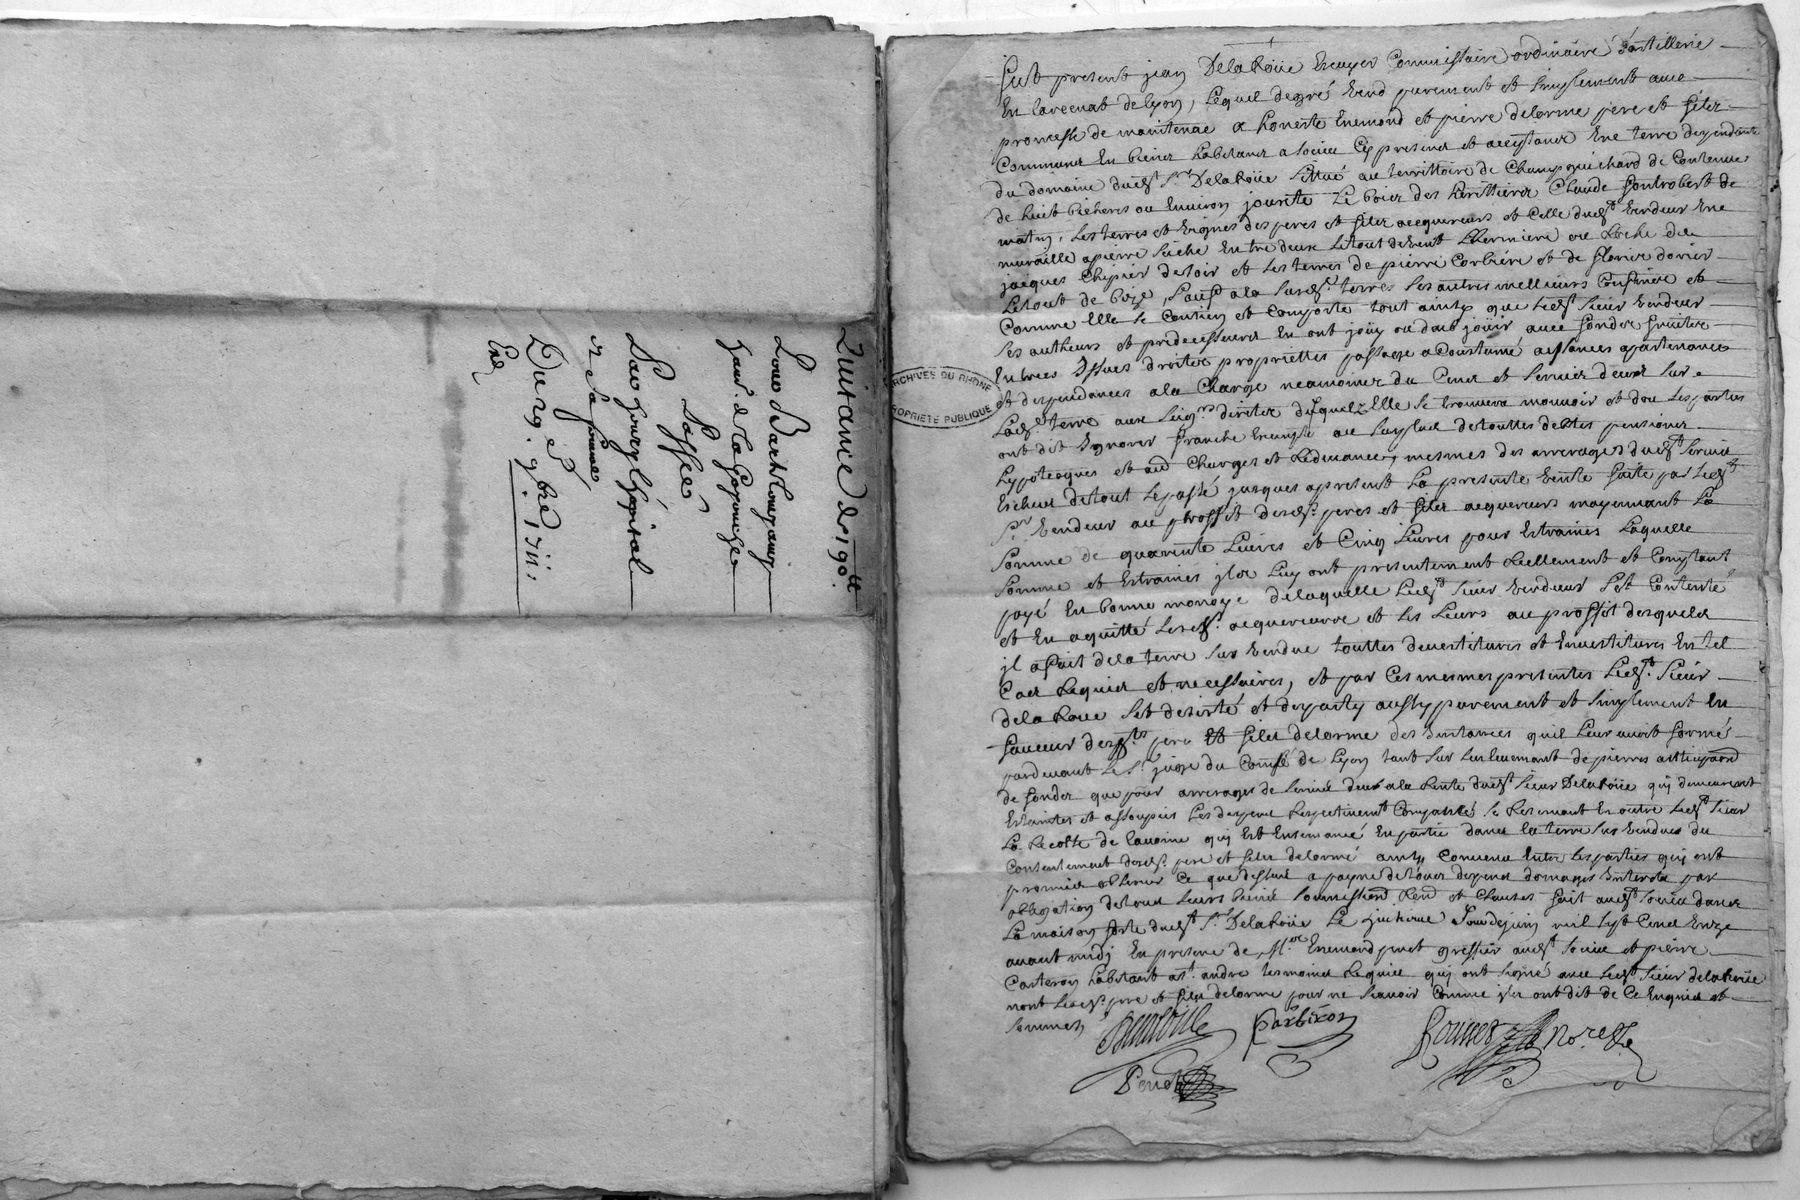 Quitance de 190 tt
Pour Barthelemy
Passée
Par hôpital
et sa femme
Du 29 9bre 1711
ARCHIVES DU RHONE
PROPRIETE PUBLIQUE
Fut present jean Delaroüe Escuyer Commissaire ordinaire d'artillerie
En larcenat de lyon, Lequel degré vend purement et simplement avec
promesse de maintenue a honeste Enemond et pierre delorme pere et filz
Communs En biens habitans a soucieu Cy presens et acceptans Une terre dependante
du domaine dudt Sr Delaroüe Sittué au territtoire de Champguichard de Contenue
de huit bicherés ou Environ jouxte Le bois des herittiers Claude gontrobert de
matin, Les terres et vignes des peres et filz acquereurs et Celle dudt vendeur Une
muraille a pierre seiche Entre deux Le tout de vent Lhermiere ou Roche de
jacques Chipier de soir et Les terres de pierre Corbiere et de
Le tout de bize, Sauf a la susdt terre ses autres meilleurs Confins et
Comme Elle se Contien et Comporte tout ainsy que ledt sieur vendeur
Ses autheurs et predecesseurs En ont joüy ou deub joüir avec fondz fruitz
Entrées Issues droitz proprietes passage acoustumé aisances apartenances
et dependances a la Charge neamoins du Cens et servis deubz sur
Ladt terre aux Seigrs directz desquelz Elle se trouvera mouvoir et dou Les parties
ont dit Ignorer franche Exempte au surplus de touttes debtes pensions
hypoteques et aud Charges et Redevances, mesmes des arrerages dudt servis
Escheus de tout le passé jusques a present La presente vente faite par Ledt
Sr vendeur au proffit desdts peres et filz acquereurs moyennant La
Somme de quarente Livres et Cinq Livres pour Estraines Laquelle
Somme et Estraines ilz Luy ont presentement Reellement et Comptant
payé En bonne monoye de laquelle Ledt sieur vendeur s'est Contenté
et En a quitté Lesdts acquereurs et les Leurs au proffit desquelz
il a fait de la terre sus vendue touttes devestitures et Investitures En tel
Cas Requis et necessaires, et par Ces mesmes presentes Ledt Sieur
dela Roue s'est desisté et departy aussy purement et simplement En
faveur desdts pere et filz delorme des Instances quil Leur avoit formé
pardevant Le Sr juge du Comté de Lyon tant sur Lenlevement de pierres
de fondz que pour arrerages de servis deubz a la Rente dudt sieur Delaroüe quy demeurent
Estaintes et assoupies Les despens Respectivemt Compansés se Reservant En outre Ledt sieur
La Recolte de lavoine quy Est Ensemancé En partie dans la terre sus vendue du
Consentement desdts pere et filz delorme ainsy Convenu Entre Les parties quy ont
promis observer Ce que dessus a payne de tous despens domages Interetz par
obligation de tous Leurs biens soumissions Ren et Clauses fait audt soucieu dans
La maison forte dudt Sr Delaroüe Le jour de juin mil sept Cens Unze
avant midy En presence de Mre Enemond greffier audt soucieu et pierre
Carteron habitant a St andre tesmoins Requis quy ont signé avec Ledt sieur delaroüe
nont Lesdts pere et filz delorme pour ne sçavoir Comme ilz ont dit de Ce Enquis et
sommés